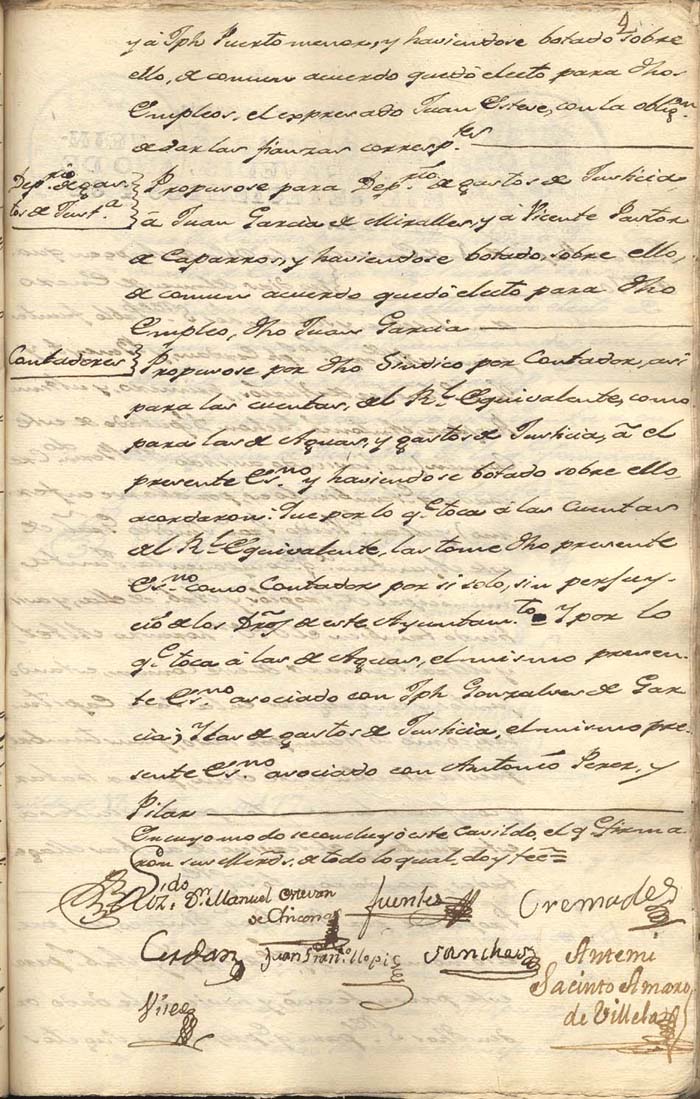 4
y á Jph Puerto menor, y haviendose botado sobre
ello, de comun acuerdo quedó electo para dhos
Empleos, el expresado Juan Esteve, con la oblig.on
de dar las fianzas corresp.tes
Dep.rio de gas-
tos de Just.a
Propusose para Dep.rio de gastos de Justicia,
á Juan Garcia de Miralles, y á Vicente Pastor
de Caparros, y haviendose botado, sobre ello,
de comun acuerdo quedó electo para dho
Empleo, dho Juan Garcia
Contadores
Propusose por dho Sindico por Contador, asi
para las cuentas, del R.l Equivalente, como
para las de Aguas, y gastos de Justicia, á el
presente Es.no y haviendose botado sobre ello,
acordaron: Que por lo q.e toca á las Cuentas
del R.l Equivalente, las tome dho presente
Es.no como Contador por si solo, sin perjuy-
cio de los Dros de este Ayuntam.to Y por lo
q.e toca á las de Aguas, el mismo presen-
te Es.no asociado con Jph Gonzalves de Gar-
cia; Y las de gastos de Justicia, el mismo pre-
sente Es.no asociado con Antonio Perez, y
Pilar
En cuyo modo se concluyó este Cavildo, el q.e firma
ron sus Mrds, de todo lo qual, doy fee=
D.n Manuel Estevan
de Chicona
fuentes
Cremades
Cerdan
Juan Fran.co Llopis
Sanchez
Antemi
Jacinto Amaro
de Villela